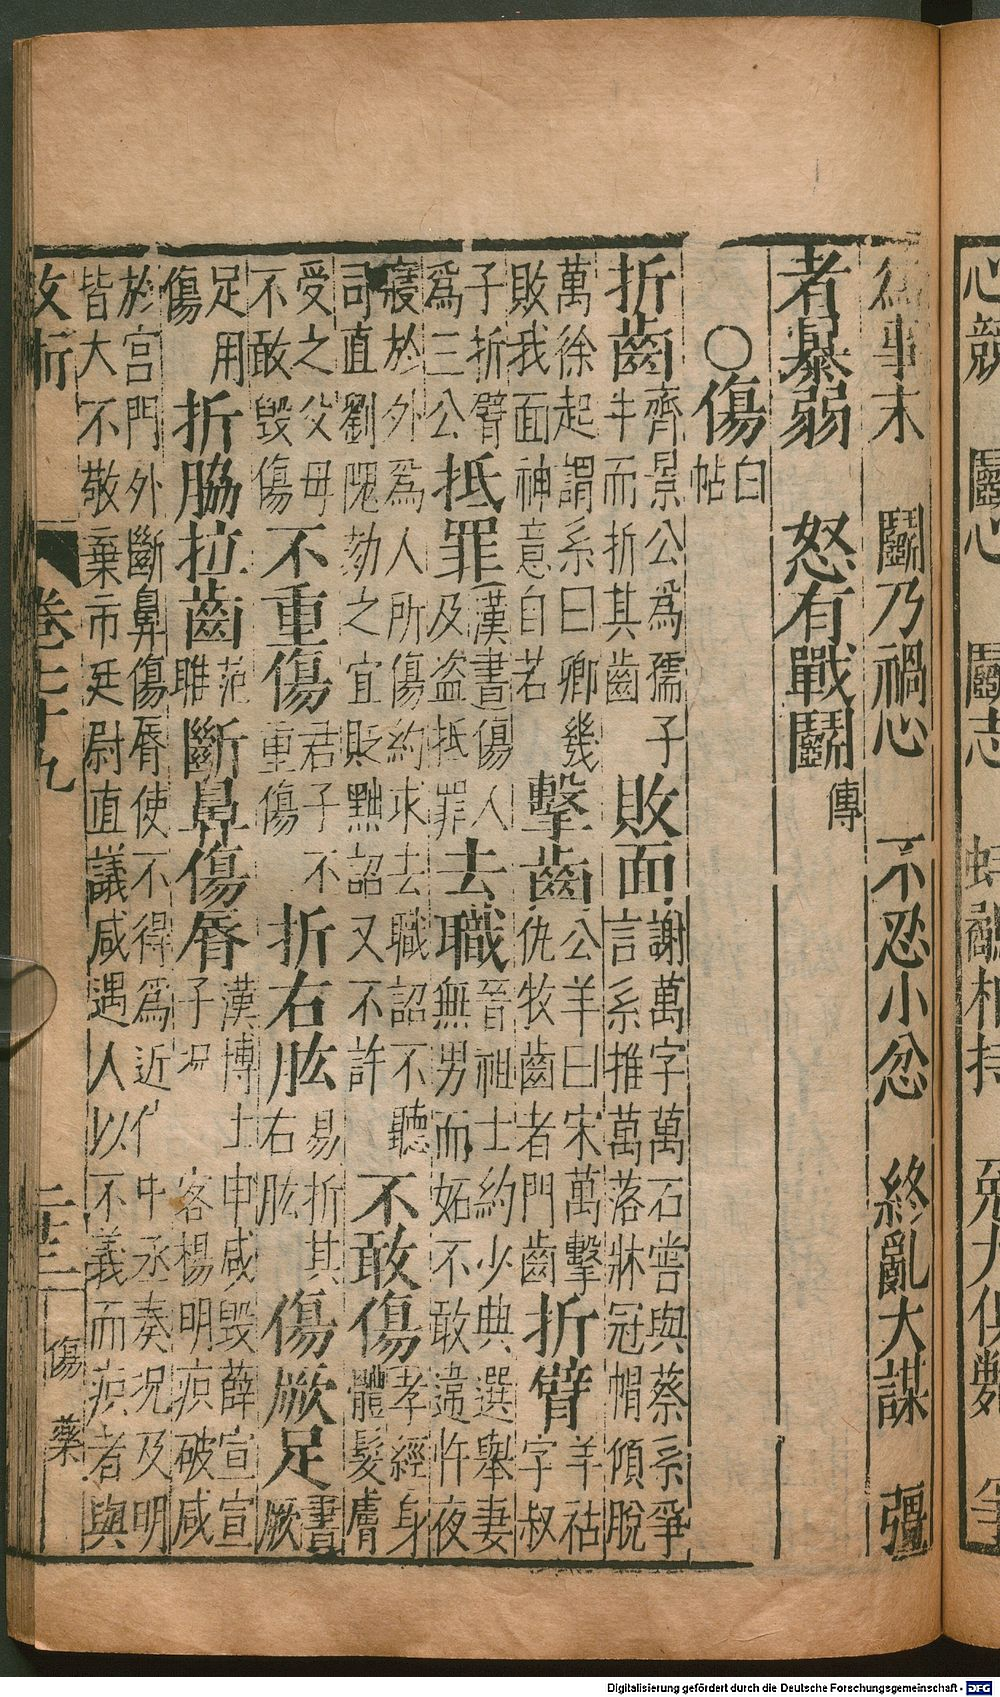 心競 鬭心 鬭志 蚌鷸相持
爲事末 鬭乃禍心 不忍小忿 終亂大謀 彊
者暴弱 怒有戰鬭 傳
○傷 白帖
折齒 齊景公爲孺子牛而折其齒 敗面 謝萬字萬石嘗與蔡系爭言系推萬落牀冠帽傾脫
萬徐起謂系曰卿幾敗我面神意自若 擊齒 公羊曰宋萬擊仇牧齒者門齒 折臂 羊祜字叔
子折臂爲三公 抵罪 漢書傷人及盗抵罪 去職 晉祖士約少典選舉妻無男而妬不敢違忤夜
寢於外爲人所傷約求去職詔不聽司直劉隗劾之宜貶黜詔又不許 不敢傷 孝經身體髮膚
受之父母不敢毀傷 不重傷 君子不重傷 折右肱 易折其右肱 傷厥足 書厥
足用傷 折脇拉齒 范雎 斷鼻傷脣 漢博士申咸毀薛宣宣子況客楊明㾗破咸
於宮門外斷鼻傷脣使不得爲近中丞奏況及明皆大不敬棄市廷尉直議咸遇人以不義而㾗者與
卷七十九 傷 藥
Digitalisierung gefördert durch die Deutsche Forschungsgemeinschaft - DFG